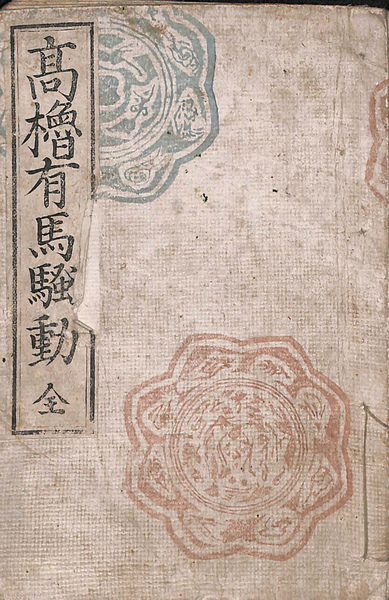 髙櫓有馬騒動 全